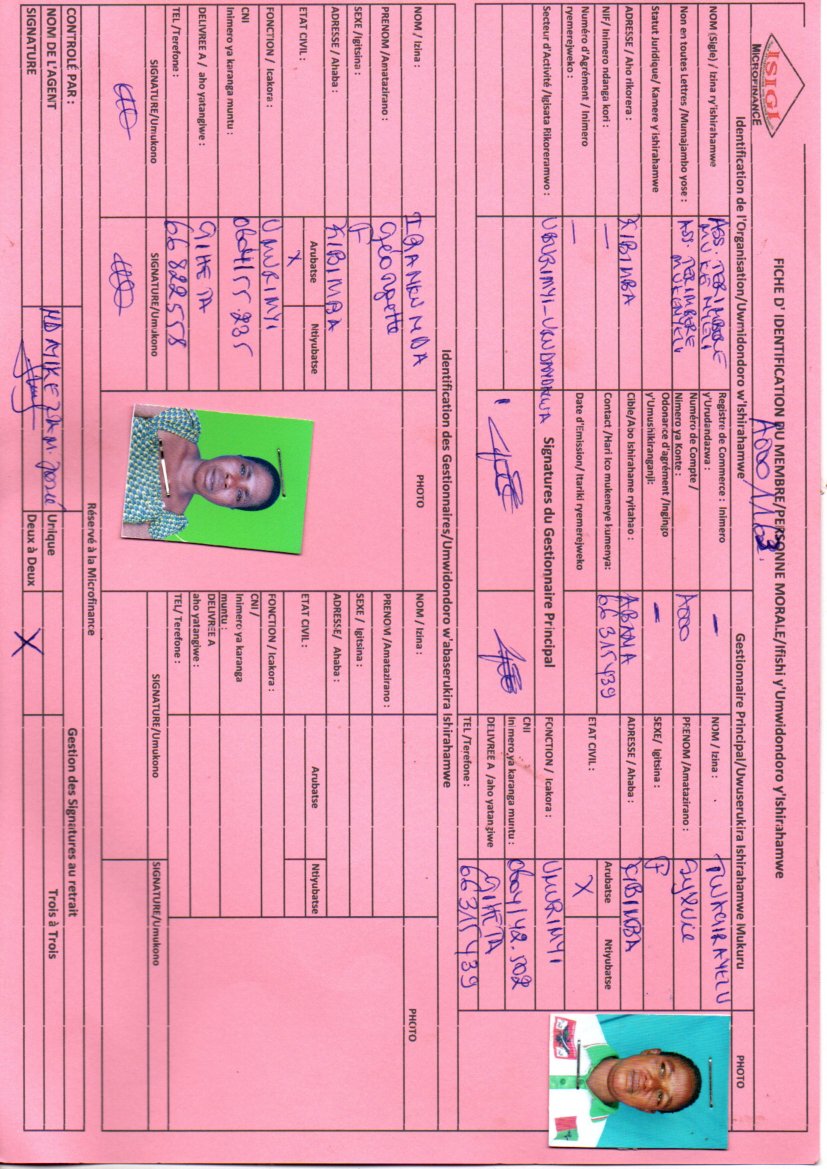 ISIGI
MICROFINANCE
FICHE D' IDENTIFICATION DU MEMBRE/PERSONNE MORALE/Ifishi y'Umwidondoro y'Ishirahamwe
A000/1163.
Identification de l'Organisation/Uwmidondoro w'Ishirahamwe
Gestionnaire Principal/Uwuserukira Ishirahamwe Mukuru
PHOTO
NOM (Sigle) / Izina ry'ishirahamwe
ASS. TERIMBERE
Registre de Commerce : Inimero y'Urudandazwa :
–
NOM / Izina :
Non en toutes Lettres /Mumajambo yose :
ASS. TERIMBERE
Numéro de Compte / Nimero ya Konte :
A000
PRENOM /Amatazirano :
Sylvie
Statut Juridique/ Kamere y'ishirahamwe
Odonance d'agrément /Ingingo y'Umushikiranganji:
–
SEXE/ Igitsina :
F
ADRESSE / Aho rikorera :
KIBIMBA
Cible/Abo Ishirahame ryitahao :
ABANA
ADRESSE / Ahaba :
KIBIMBA
NIF/ Inimero ndanga kori :
–
Contact /Hari ico mukeneye kumenya:
66315439
ETAT CIVIL :
Arubatse
Ntiyubatse
X
Numéro d'Agrément / Inimero ryemerejweko :
–
Date d'Emission/ Itariki ryemerejweko
Secteur d'Activité /Igisata Rikoreramwo :
Signatures du Gestionnaire Principal
FONCTION / Icakora :
UMURIMYI
CNI
Inimero ya karanga muntu :
DELIVREE A /aho yatangiwe
GIHETA
TEL /Terefone :
66315439
Identification des Gestionnaires/Umwidondoro w'abaserukira Ishirahamwe
NOM / Izina :
IRANKUNDA
PHOTO
NOM / Izina :
PHOTO
PRENOM /Amatazirano :
Georgette
PRENOM/Amatazirano :
SEXE /Igitsina :
F
SEXE / Igitsina :
ADRESSE / Ahaba :
KIBIMBA
ADRESSE/ Ahaba :
ETAT CIVIL :
Arubatse
Ntiyubatse
X
ETAT CIVIL :
Arubatse
Ntiyubatse
FONCTION / Icakora :
UMURIMYI
FONCTION / Icakora :
CNI
Inimero ya karanga muntu :
CNI /
Inimero ya karanga muntu :
DELIVREE A / aho yatangiwe :
GIHETA
DELIVREE A
aho yatangiwe :
TEL /Terefone :
66822558
TEL/ Terefone :
SIGNATURE/Umukono
SIGNATURE/Umukono
SIGNATURE/Umukono
SIGNATURE/Umukono
Réservé à la Microfinance
CONTROLÉ PAR :
Gestion des Signatures au retrait
NOM DE L'AGENT
Unique
Trois à Trois
SIGNATURE
Deux à Deux
X